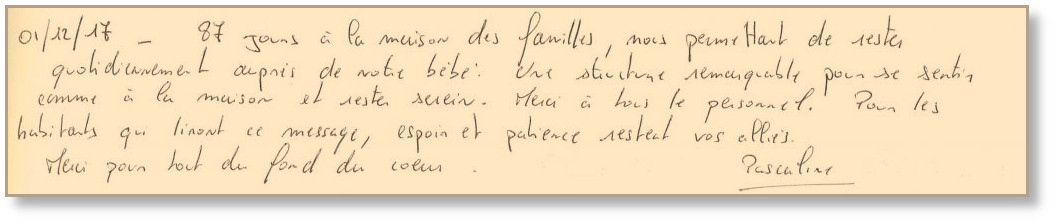 01/12/17 _ 87 jours à la maison des familles, nous permettant de rester
quotidiennement auprès de notre bébé. Une structure remarquable pour se sentir
comme à la maison et rester serein. Merci à tous le personnel. Pour les
habitants qui liront ce message, espoir et patience restent vos alliés.
Merci pour tout du fond du coeur.
Pascaline